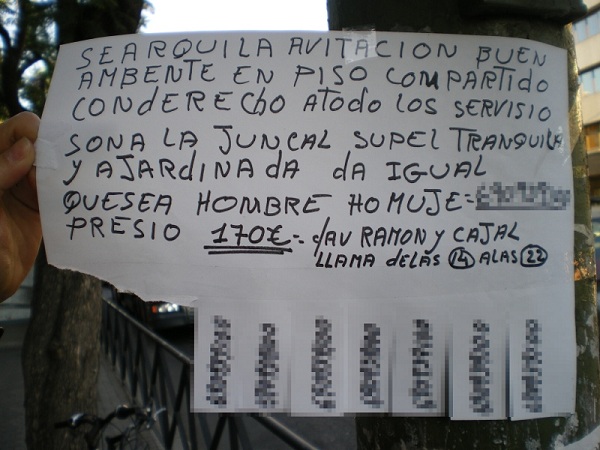 SEARQUILA AVITACION BUEN
AMBENTE EN PISO COMPARTIDO
CONDERECHO ATODO LOS SERVISIO
SONA LA JUNCAL SUPEL TRANQUILA
Y AJARDINADA DA IGUAL
QUESEA HOMBRE HOMUJE=
PRESIO 170€=. C/AV RAMON Y CAJAL
LLAMA DELAS 14 ALAS 22